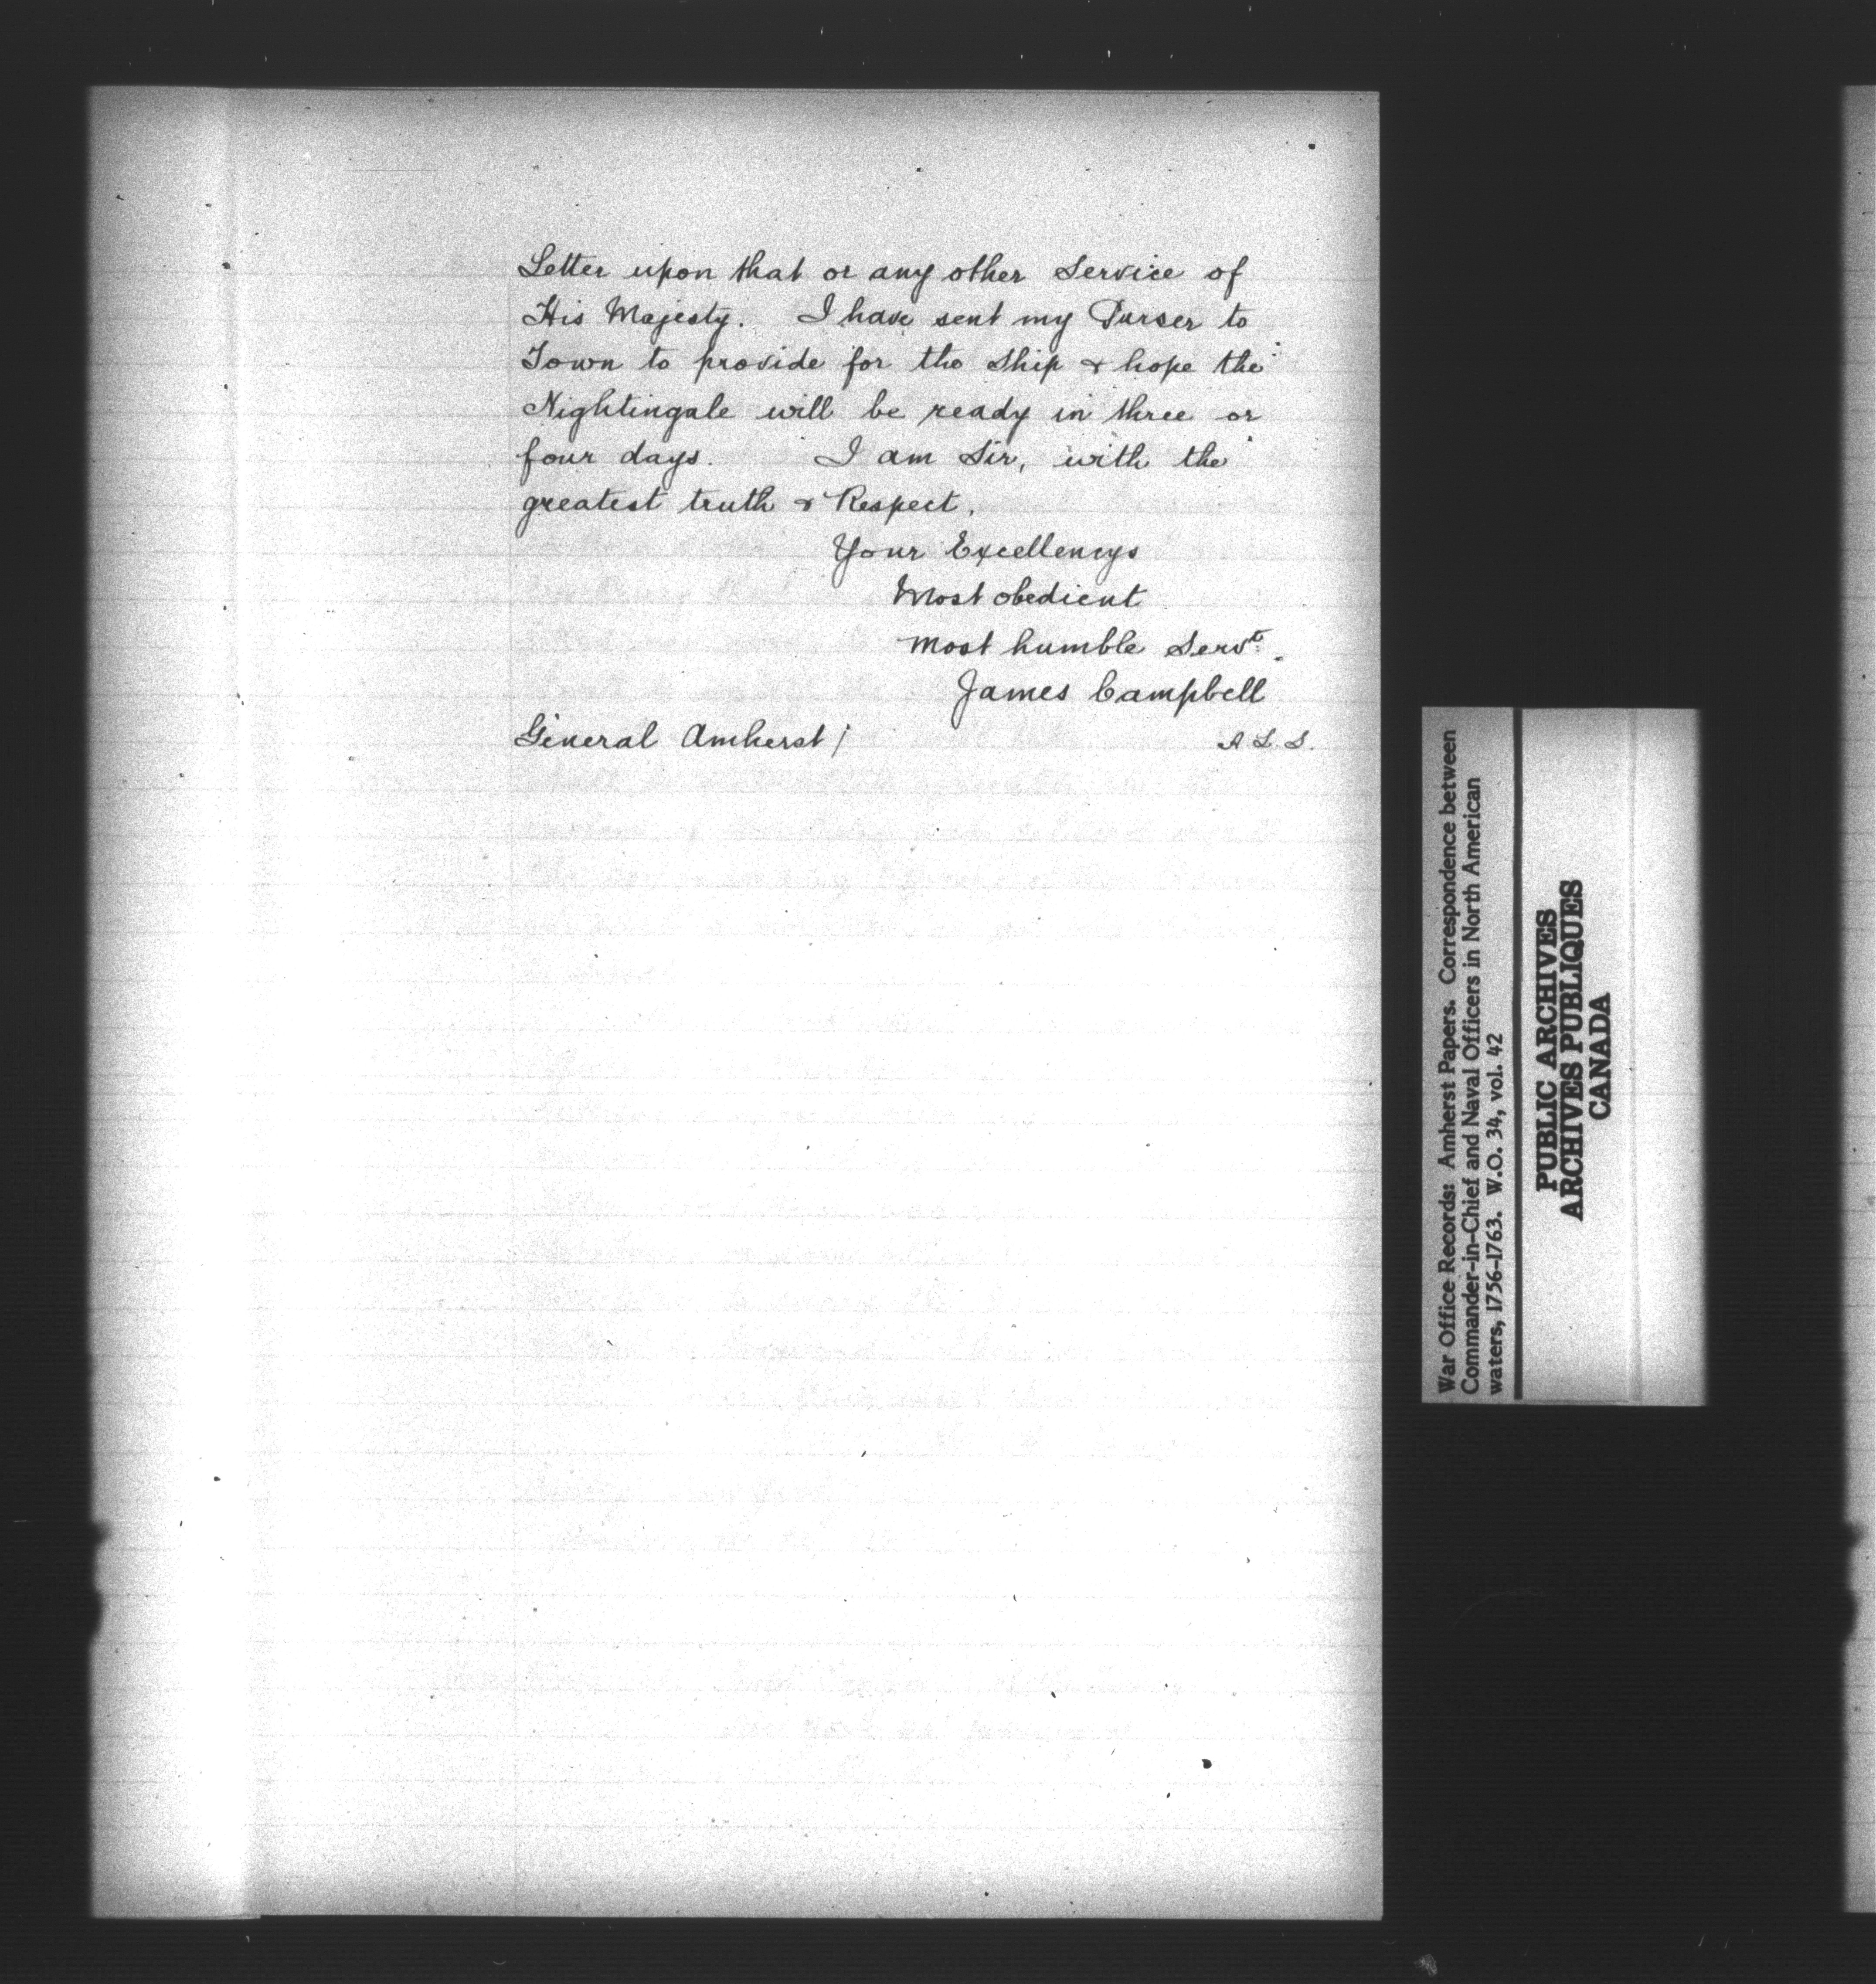 Letter upon that or any other Service of
His Majesty. I have sent my Purser to
Town to provide for the Ship & hope the
Nightingale will be ready in three or
four days. I am Sir, with the
greatest truth & Respect.
Your Excellencys
Most obedient
most humble Servt.
James Campbell
General Amherst /
A. L. S.
War Office Records: Amherst Papers. Correspondence between
Commander-in-Chief and Naval Officers in North American
waters, 1756-1763. W.O. 34, vol. 42
PUBLIC ARCHIVES
ARCHIVES PUBLIQUES
CANADA